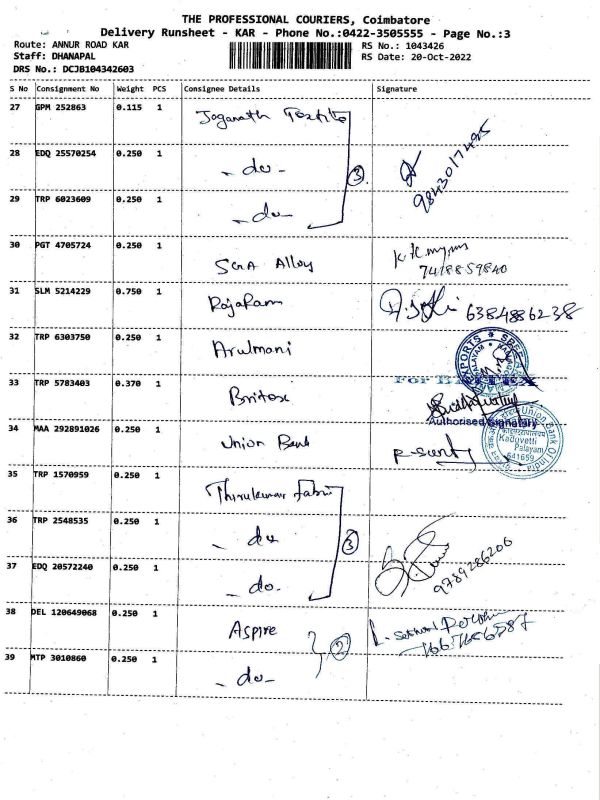 THE PROFESSIONAL COURIERS, Coimbatore
Delivery Runsheet - KAR - Phone No.:0422-3505555 - Page No.:3
Route: ANNUR ROAD KAR
Staff: DHANAPAL
DRS No.: DCJB104342603
RS No.: 1043426
RS Date: 20-Oct-2022
S No Consignment No Weight PCS Consignee Details Signature
27 GPM 252863 0.115 1 Joganath Textile
28 EDQ 25570254 0.250 1 - do - 3 9843017495
29 TRP 6023609 0.250 1 - do -
30 PGT 4705724 0.250 1 SGA Alloy 7418859840
31 SLM 5214229 0.750 1 Rajaram 6384886238
32 TRP 6303750 0.250 1 Arulmani
33 TRP 5783403 0.370 1 Britex
For
Authorised Signatory
34 MAA 292891026 0.250 1 Union Bank
Union Bank Of India
Kaduvetti
Palayam
641659
35 TRP 1570959 0.250 1 Thirukumar Fabric
36 TRP 2548535 0.250 1 - do 3
37 EDQ 20572240 0.250 1 - do. 9789286206
38 DEL 120649068 0.250 1 Aspire 2 7667656587
39 MTP 3010860 0.250 1 - do -